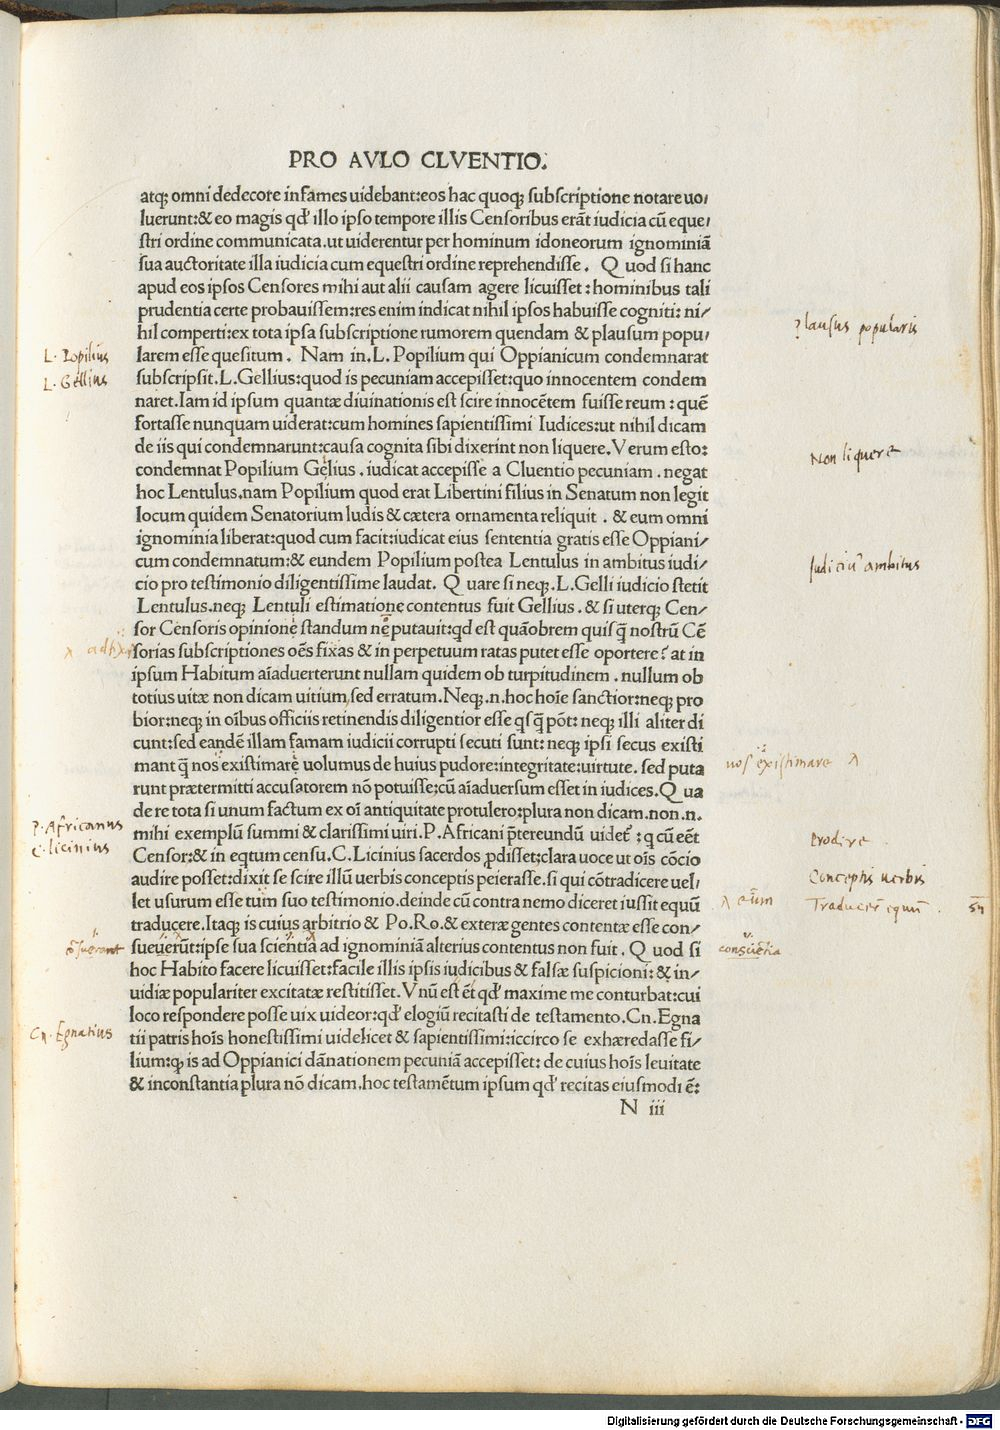 PRO AVLO CLVENTIO.
atq; omni dedecore infames uidebant:eos hac quoq; subscriptione notare uo/
luerunt:& eo magis qd' illo ipso tempore illis Censoribus erāt iudicia cū eque/
stri ordine communicata.ut uiderentur per hominum idoneorum ignominiā
sua auctoritate illa iudicia cum equestri ordine reprehendisse. Quod si hanc
apud eos ipsos Censores mihi aut alii causam agere licuisset: hominibus tali
prudentia certe probauissem:res enim indicat nihil ipsos habuisse cogniti: ni/
hil comperti:ex tota ipsa subscriptione rumorem quendam & plausum popu/
larem esse quesitum. Nam in.L.Popilium qui Oppianicum condemnarat
subscripsit.L.Gellius:quod is pecuniam accepisset:quo innocentem condem
naret.Iam id ipsum quantæ diuinationis est scire innocētem fuisse reum: quē
fortasse nunquam uiderat:cum homines sapientissimi Iudices:ut nihil dicam
de iis qui condemnarunt:causa cognita sibi dixerint non liquere.Verum esto:
condemnat Popilium Gelius.iudicat accepisse a Cluentio pecuniam.negat
hoc Lentulus.nam Popilium quod erat Libertini filius in Senatum non legit
locum quidem Senatorium ludis & cætera ornamenta reliquit.& eum omni
ignominia liberat:quod cum facit:iudicat eius sententia gratis esse Oppiani/
cum condemnatum:& eundem Popilium postea Lentulus in ambitus iudi/
cio pro testimonio diligentissime laudat. Quare si neq;.L.Gelli iudicio stetit
Lentulus.neq; Lentuli estimatione contentus fuit Gellius.& si uterq; Cen/
sor Censoris opinione standum nē putauit:qd est quāobrem quisq̄ nostrū Cē
sorias subscriptiones oēs fixas & in perpetuum ratas putet esse oportere? at in
ipsum Habitum aīaduerterunt nullam quidem ob turpitudinem.nullum ob
totius uitæ non dicam uitium,sed erratum.Neq;.n.hoc hoīe sanctior:neq; pro
bior:neq; in oībus officiis retinendis diligentior esse qsq̄ pōt: neq; illi aliter di
cunt:sed eandē illam famam iudicii corrupti secuti sunt: neq; ipsi secus existi
mant q̄ nos existimare uolumus de huius pudore:integritate:uirtute.sed puta
runt prætermitti accusatorem nō potuisse:cū aīaduersum esset in iudices.Qua
de re tota si unum factum ex oī antiquitate protulero:plura non dicam.non.n.
mihi exemplū summi & clarissimi uiri.P.Africani p̄tereundū uidet̄: q cū eēt
Censor:& in eqtum censu.C.Licinius sacerdos ꝓdisset:clara uoce ut oīs cōcio
audire posset:dixit se scire illū uerbis conceptis peierasse.si qui cōtradicere uel/
let usurum esse tum suo testimonio.deinde cū contra nemo diceret iussit equū
traducere.Itaq; is cuius arbitrio & Po.Ro.& exteræ gentes contentæ esse con/
sueuerūt:ipse sua scientiā ad ignominiā alterius contentus non fuit. Quod si
hoc Habito facere licuisset:facile illis ipsis iudicibus & falsæ suspicioni:& in/
uidiæ populariter excitatæ restitisset.Vnū est ēt qd' maxime me conturbat:cui
loco respondere posse uix uideor:qd' elogiū recitasti de testamento.Cn.Egna
tii patris hoīs honestissimi uidelicet & sapientissimi:iccirco se exhæredasse fi/
lium:q; is ad Oppianici dānationem pecuniā accepisset: de cuius hoīs leuitate
& inconstantia plura nō dicam.hoc testamētum ipsum qd' recitas eiusmodi ē:
N iii
L. Popilius
L. Gellius
P. Africanus
C. licinius
Cn. Egnatius
Plausus popularis
Non liquere
Judiciū ambitus
nos existimare
Prodire
Conceptis uerbis
Traducere equū.
Digitalisierung gefördert durch die Deutsche Forschungsgemeinschaft - DFG